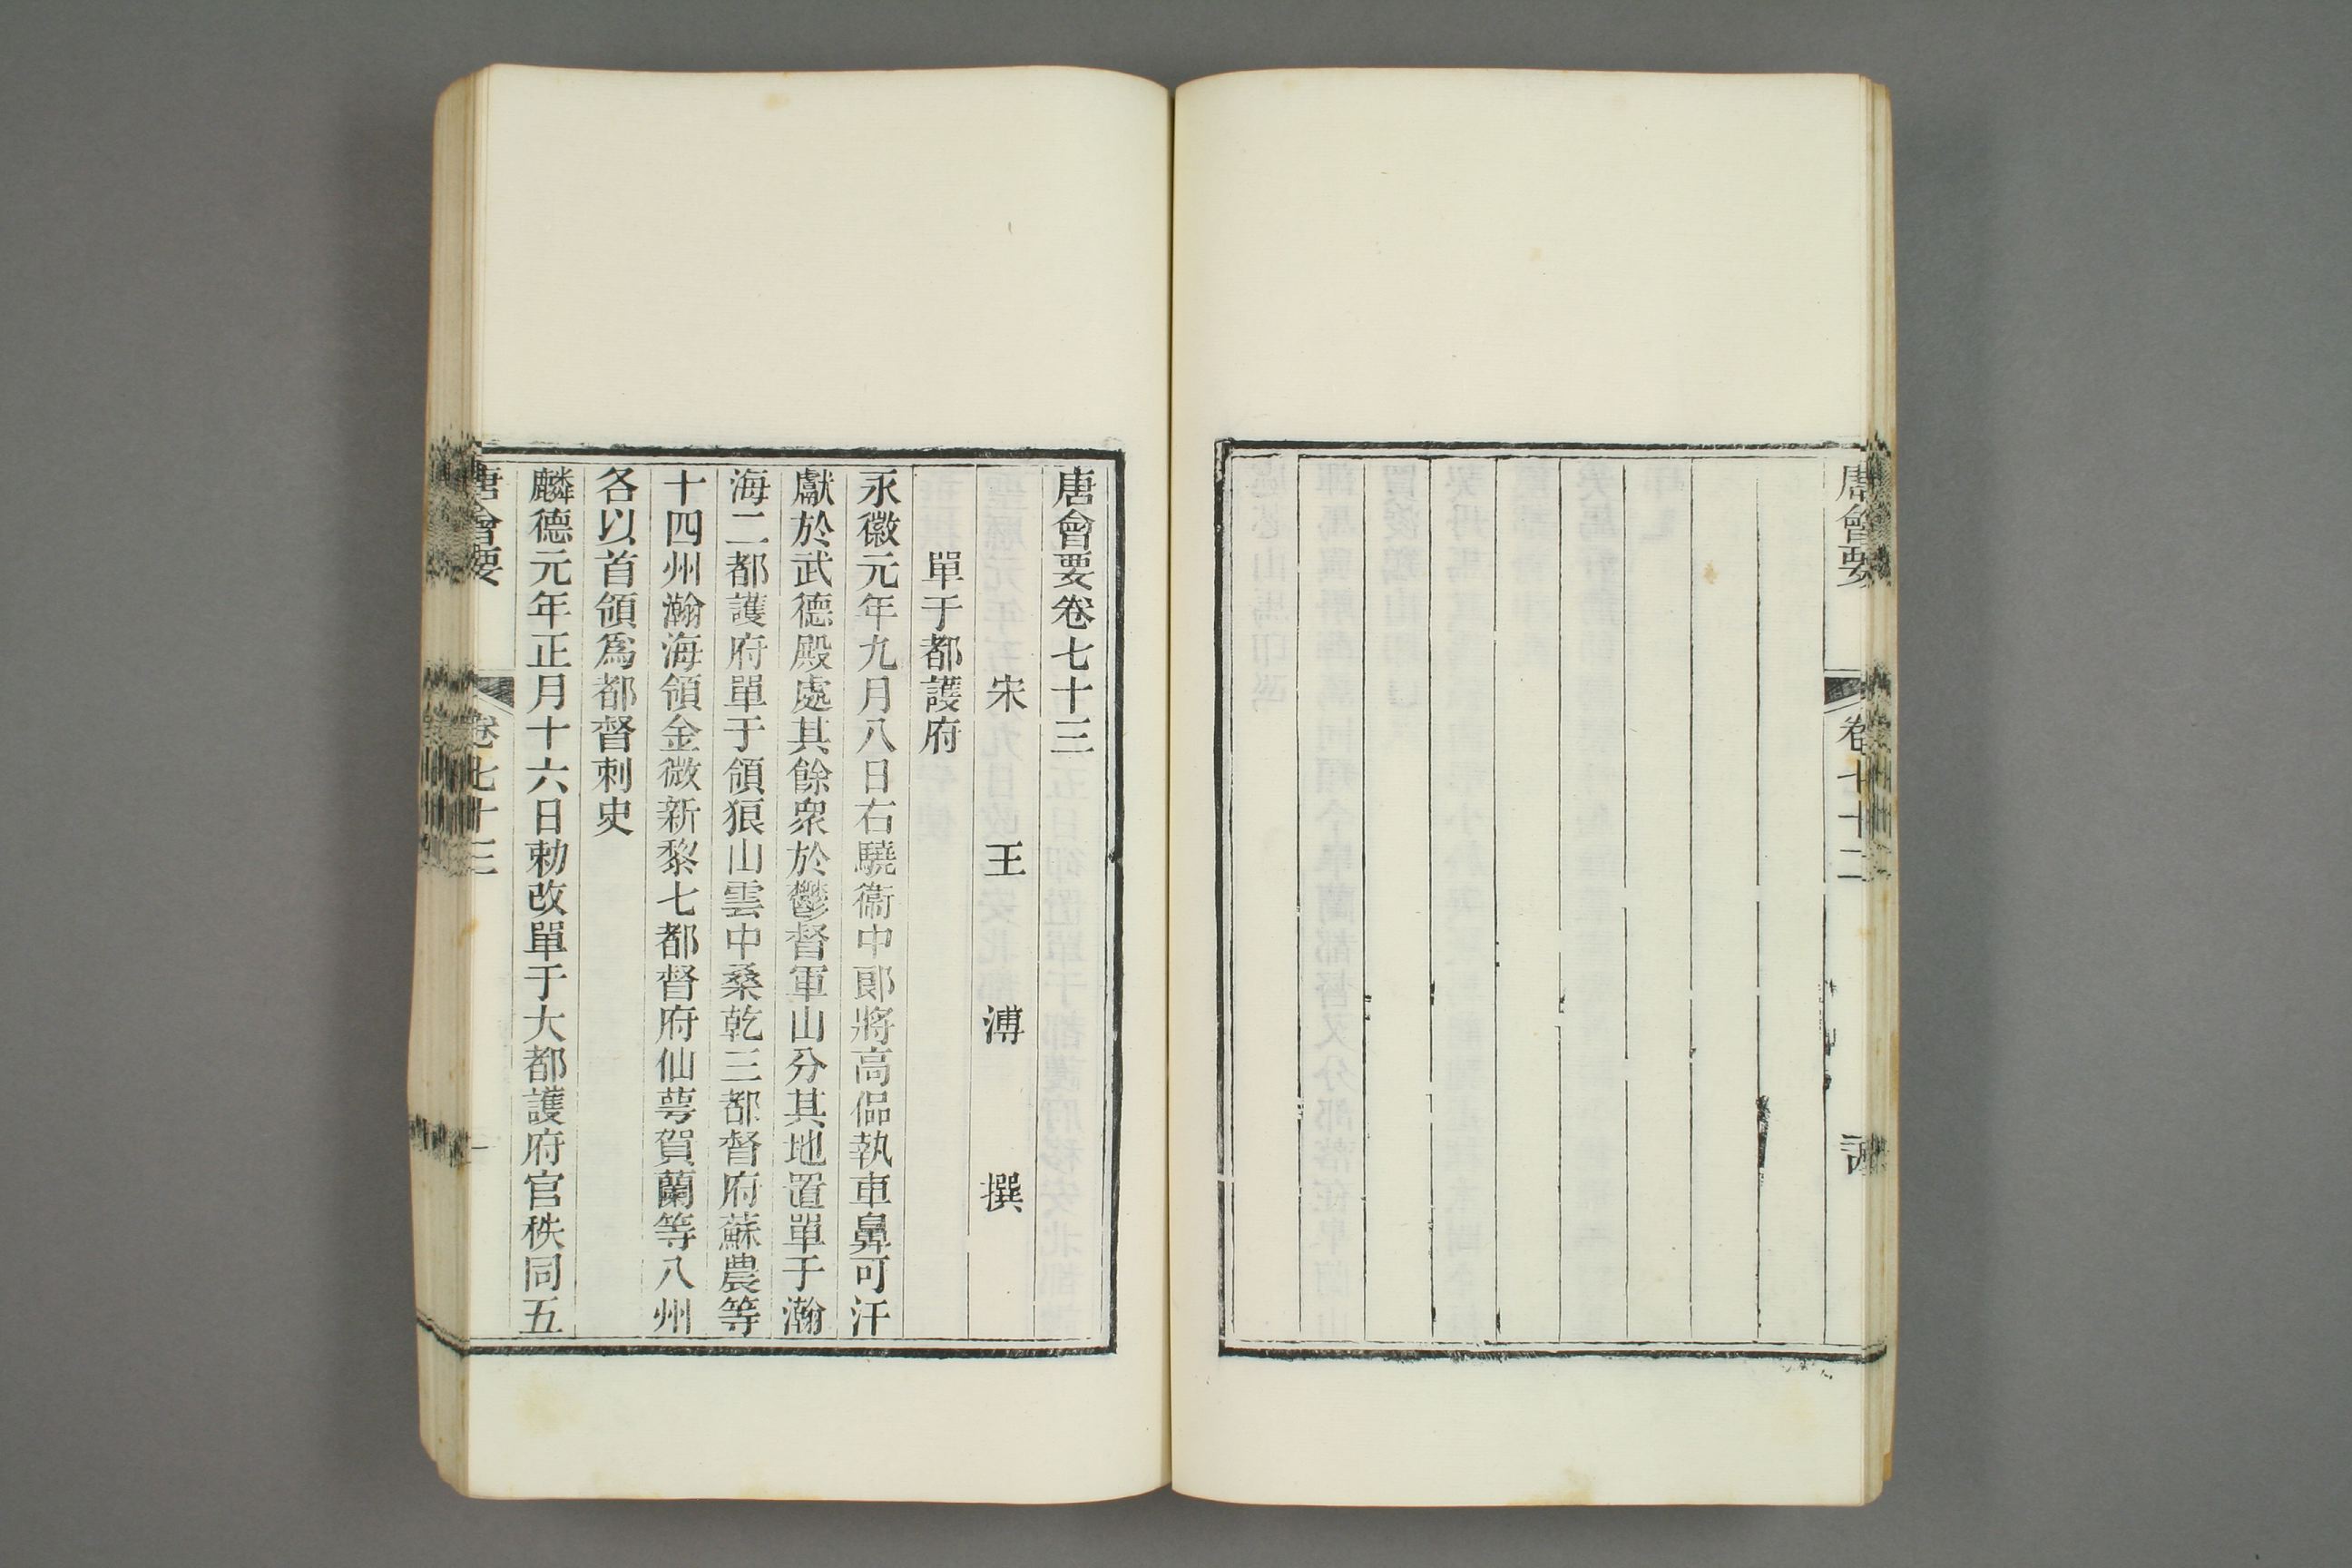 唐會要
卷七十二
唐會要卷七十三
宋 王 溥 撰
單于都護府
永徽元年九月八日右驍衞中郎將高侃執車鼻可汗
獻於武德殿處其餘衆於鬱督軍山分其地置單于瀚
海二都護府單于領狼山雲中桑乾三都督府蘇農等
十四州瀚海領金微新黎七都督府仙萼賀蘭等八州
各以首領爲都督刺史
麟德元年正月十六日勅改單于大都護府官秩同五
唐會要
卷七十三
一